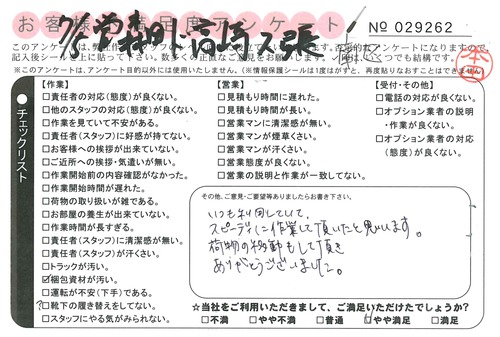 お客様満足度アンケート
No 029262
このアンケートは、
記入後シールを上に貼って下さい。数多くの正直なご意見をお願いします。
※このアンケートは、アンケート目的以外には使用いたしません。(※情報保護シールは1度はがすと、再度貼りなおすことはできません)
本
チェックリスト
【作業】
□責任者の対応(態度)が良くない。
□他のスタッフの対応(態度)が良くない。
□作業を見ていて不安がある。
□責任者(スタッフ)に好感が持てない。
□お客様への挨拶が出来ていない。
□ご近所への挨拶・気遣いが無い。
□作業開始前の内容確認がなかった。
□作業開始時間が遅れた。
□荷物の取り扱いが雑である。
□お部屋の養生が出来ていない。
□作業時間が長すぎる。
□責任者(スタッフ)に清潔感が無い。
□責任者(スタッフ)が汗くさい。
□トラックが汚い。
□梱包資材が汚い。
□運転が不安(下手)である。
□靴下の履き替えをしてない。
□スタッフにやる気がみられない。
【営業】
□見積もり時間に遅れた。
□見積もり時間が長い。
□営業マンに清潔感が無い。
□営業マンが煙草くさい。
□営業マンが汗くさい。
□営業態度が良くない。
□営業の説明と作業が一致してない。
【受付・その他】
□電話の対応が良くない。
□オプション業者の説明・作業が良くない。
□オプション業者の対応(態度)が良くない。
その他、ご意見・ご要望等ありましたらお書き下さい。
いつも利用していて、
スピーディに作業して頂いたと思います。
荷物の移動もして頂き
ありがとうございました。
☆当社をご利用いただきまして、ご満足いただけたでしょうか?
□不満 □やや不満 □普通 □やや満足 □満足